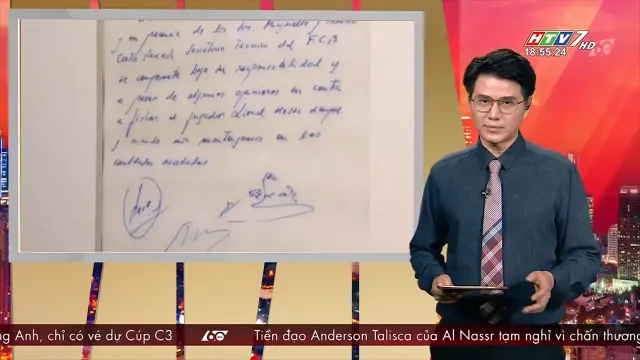 y en presencia de los Srs. Minguella y Horacio
Carlos Rexach Secretario Técnico del F.C.B
se compromete bajo su responsabilidad y
a pesar de algunas opiniones en contra
a fichar al jugador Lionel Messi siempre
y cuando nos mantengamos en las
cantidades acordadas
HTV7 HD
18:55:24
60
ng Anh, chỉ có vé dự Cúp C3
60
Tiền đạo Anderson Talisca của Al Nassr tạm nghỉ vì chấn thương